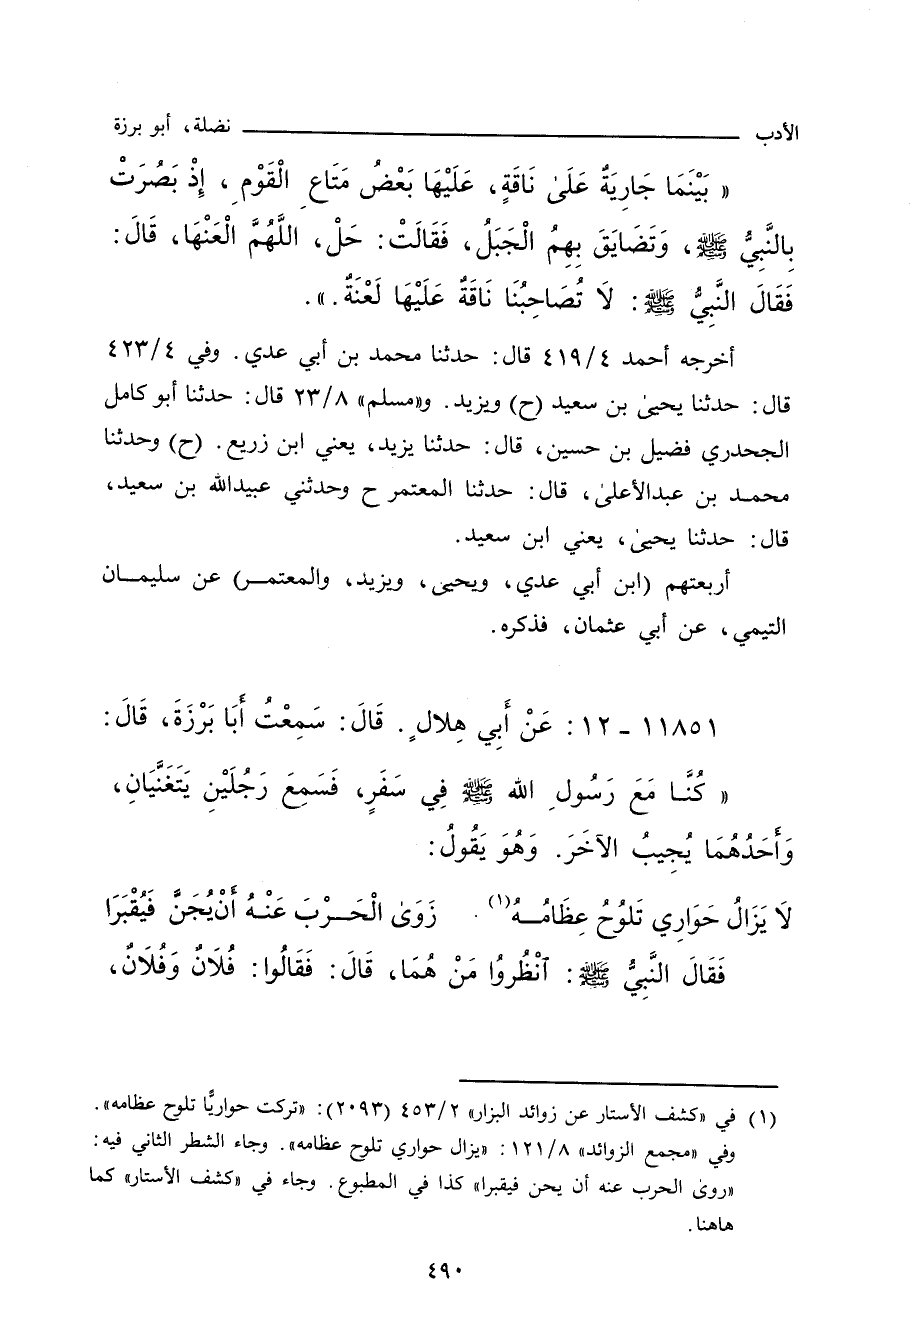 الأدب ــــــــــــــ نضلة، أبو برزة
« بَيْنَمَا جَارِيَةٌ عَلَىٰ نَاقَةٍ، عَلَيْهَا بَعْضُ مَتَاعِ الْقَوْمِ، إِذْ بَصُرَتْ
بِالنَّبِيِّ ﷺ، وَتَضَايَقَ بِهِمُ الْجَبَلُ، فَقَالَتْ: حَلْ، اللَّهُمَّ الْعَنْهَا، قَالَ:
فَقَالَ النَّبِيُّ ﷺ: لَا تُصَاحِبُنَا نَاقَةٌ عَلَيْهَا لَعْنَةٌ.».
أخرجه أحمد ٤١٩/٤ قال: حدثنا محمد بن أبي عدي. وفي ٤٢٣/٤
قال: حدثنا يحيىٰ بن سعيد (ح) ويزيد. و«مسلم» ٢٣/٨ قال: حدثنا أبو كامل
الجحدري فضيل بن حسين، قال: حدثنا يزيد، يعني ابن زريع. (ح) وحدثنا
محمد بن عبدالأعلىٰ، قال: حدثنا المعتمر ح وحدثني عبيدالله بن سعيد،
قال: حدثنا يحيىٰ، يعني ابن سعيد.
أربعتهم (ابن أبي عدي، ويحيى، ويزيد، والمعتمر) عن سليمان
التيمي، عن أبي عثمان، فذكره.
١١٨٥١ ـ ١٢: عَنْ أَبِي هِلَالٍ. قَالَ: سَمِعْتُ أَبَا بَرْزَةَ، قَالَ:
« كُنَّا مَعَ رَسُولِ الله ﷺ فِي سَفَرٍ، فَسَمِعَ رَجُلَيْنِ يَتَغَنَّيَانِ،
وَأَحَدُهُمَا يُجِيبُ الآخَرَ. وَهُوَ يَقُولُ:
لَا يَزَالُ حَوَارِي تَلُوحُ عِظَامُهُ(١). زَوَىٰ الْحَرْبَ عَنْهُ أَنْ يُجَنَّ فَيُقْبَرَا
فَقَالَ النَّبِيُّ ﷺ: ٱنْظُرُوا مَنْ هُمَا، قَالَ: فَقَالُوا: فُلَانٌ وَفُلَانٌ،
(١) في «كشف الأستار عن زوائد البزار» ٤٥٣/٢ (٢٠٩٣): «تركت حواريًّا تلوح عظامه».
وفي «مجمع الزوائد» ١٢١/٨: «يزال حواري تلوح عظامه». وجاء الشطر الثاني فيه:
«روىٰ الحرب عنه أن يحن فيقبرا» كذا في المطبوع. وجاء في «كشف الأستار» كما
هاهنا.
٤٩٠